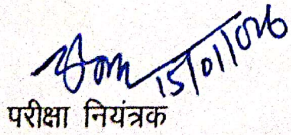 15/01/026
परीक्षा नियंत्रक